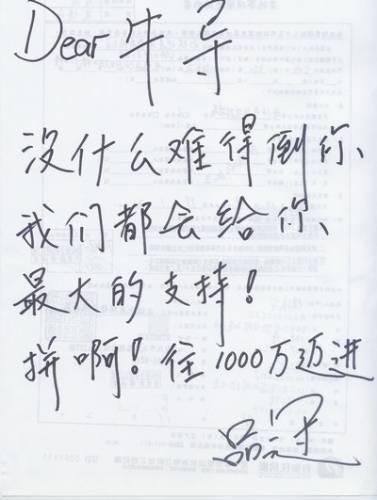 Dear 牛牛
没什么难得倒你、
我们都会给你、
最大的支持！
拼啊！往1000万迈进